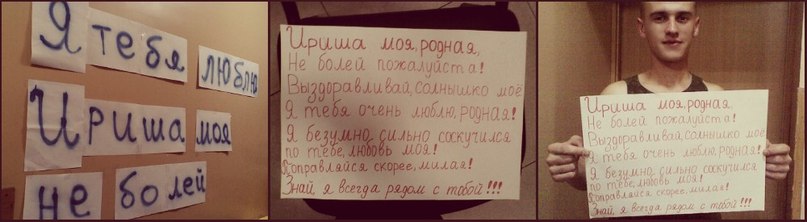 Я тебя люблю
Ириша моя
не болей
Ириша моя, родная,
Не болей пожалуйста!
Выздоравливай, солнышко моё
Я тебя очень люблю, родная!
Я безумно сильно соскучился
по тебе, любовь моя!
Поправляйся скорее, милая!
Знай, я всегда рядом с тобой!!!
Ириша моя, родная,
Не болей пожалуйста!
Выздоравливай, солнышко моё
Я тебя очень люблю, родная!
Я безумно сильно соскучился
по тебе, любовь моя!
Поправляйся скорее, милая!
Знай, я всегда рядом с тобой!!!